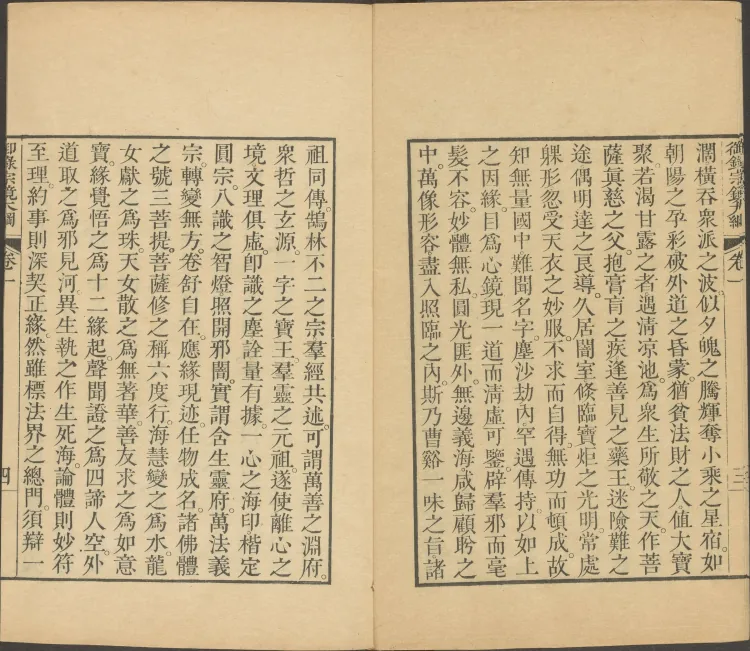 濶橫吞衆派之波。似夕魄之騰輝。奪小乘之星宿。如
朝陽之孕彩。破外道之昏蒙。猶貧法財之人。値大寶
聚。若渴甘露之者。遇清凉池。爲衆生所敬之天。作菩
薩眞慈之父。抱膏肓之疾。逢善見之藥王。迷險難之
途。偶明達之良導。久居闇室。倐臨寶炬之光明。常處
躶形。忽受天衣之妙服。不求而自得。無功而頓成。故
知無量國中。難聞名字。塵沙劫內。罕遇傳持。以如上
之因緣。目爲心鏡。現一道而淸虛可鑒。辟羣邪而毫
髮不容。妙體無私。圓光匪外。無邊義海。咸歸顧盻之
中。萬像形容。盡入照臨之內。斯乃曹谿一味之旨。諸
祖同傳。鵠林不二之宗。羣經共述。可謂萬善之淵府。
衆哲之玄源。一字之寶王。羣靈之元祖。遂使離心之
境。文理俱虛。卽識之塵。詮量有據。一心之海印。楷定
圓宗。八識之智燈。照開邪闇。實謂含生靈府。萬法義
宗。轉變無方。卷舒自在。應緣現迹。任物成名。諸佛體
之號三菩提。菩薩修之稱六度行。海慧變之爲水。龍
女獻之爲珠。天女散之爲無著華。善友求之爲如意
寶。緣覺悟之爲十二緣起。聲聞證之爲四諦人空。外
道取之爲邪見河。異生執之作生死海。論體則妙符
至理。約事則深契正緣。然雖標法界之總門。須辯一
御錄宗鏡大綱
卷一
四